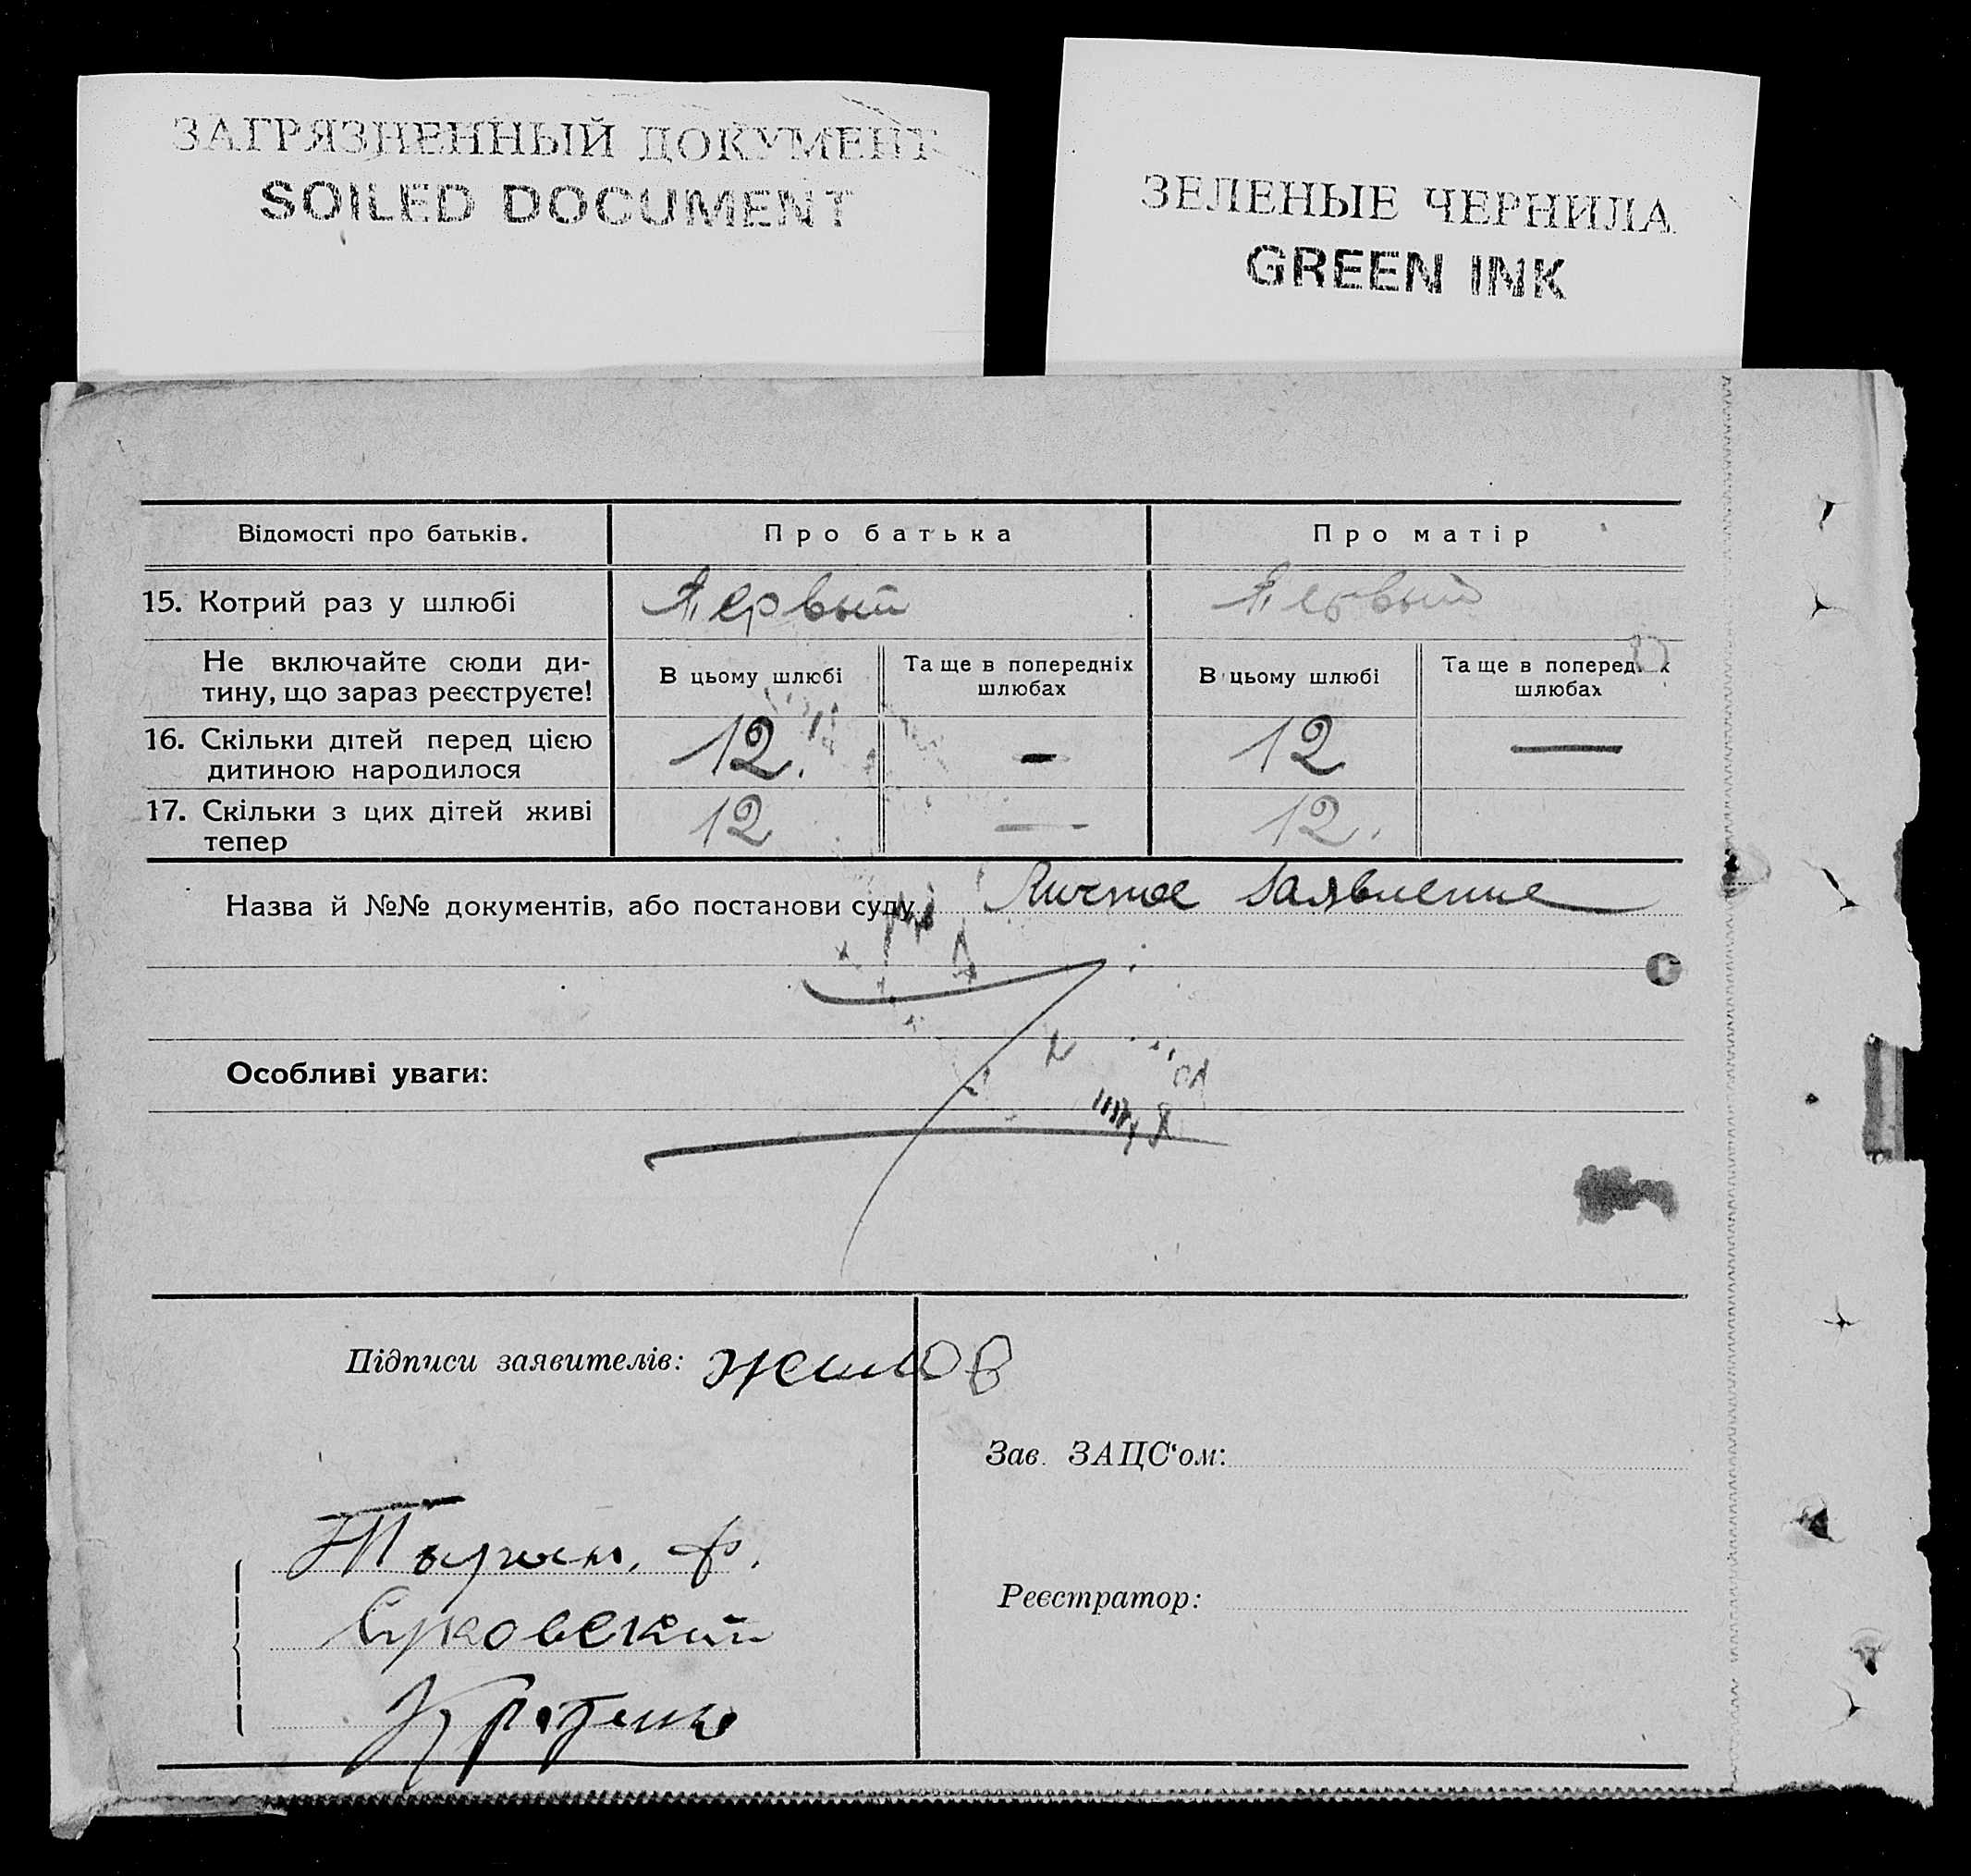 ЗАГРЯЗНЕННЫЙ ДОКУМЕНТ
SOILED DOCUMENT
ЗЕЛЕНЫЕ ЧЕРНИЛА
GREEN INK
Відомості про батьків. Про батька Про матір
15. Котрий раз у шлюбі Первый Первый
Не включайте сюди ди-
тину, що зараз реєструєте!
В цьому шлюбі
Та ще в попередніх
шлюбах
В цьому шлюбі
Та ще в попередніх
шлюбах
16. Скільки дітей перед цією
дитиною народилося
12. — 12 —
17. Скільки з цих дітей живі
тепер
12 — 12.
Назва й №№ документів, або постанови суду Личное заявление
Особливі уваги:
Підписи заявителів:
Зав. ЗАЦС‘ом:
Реєстратор: